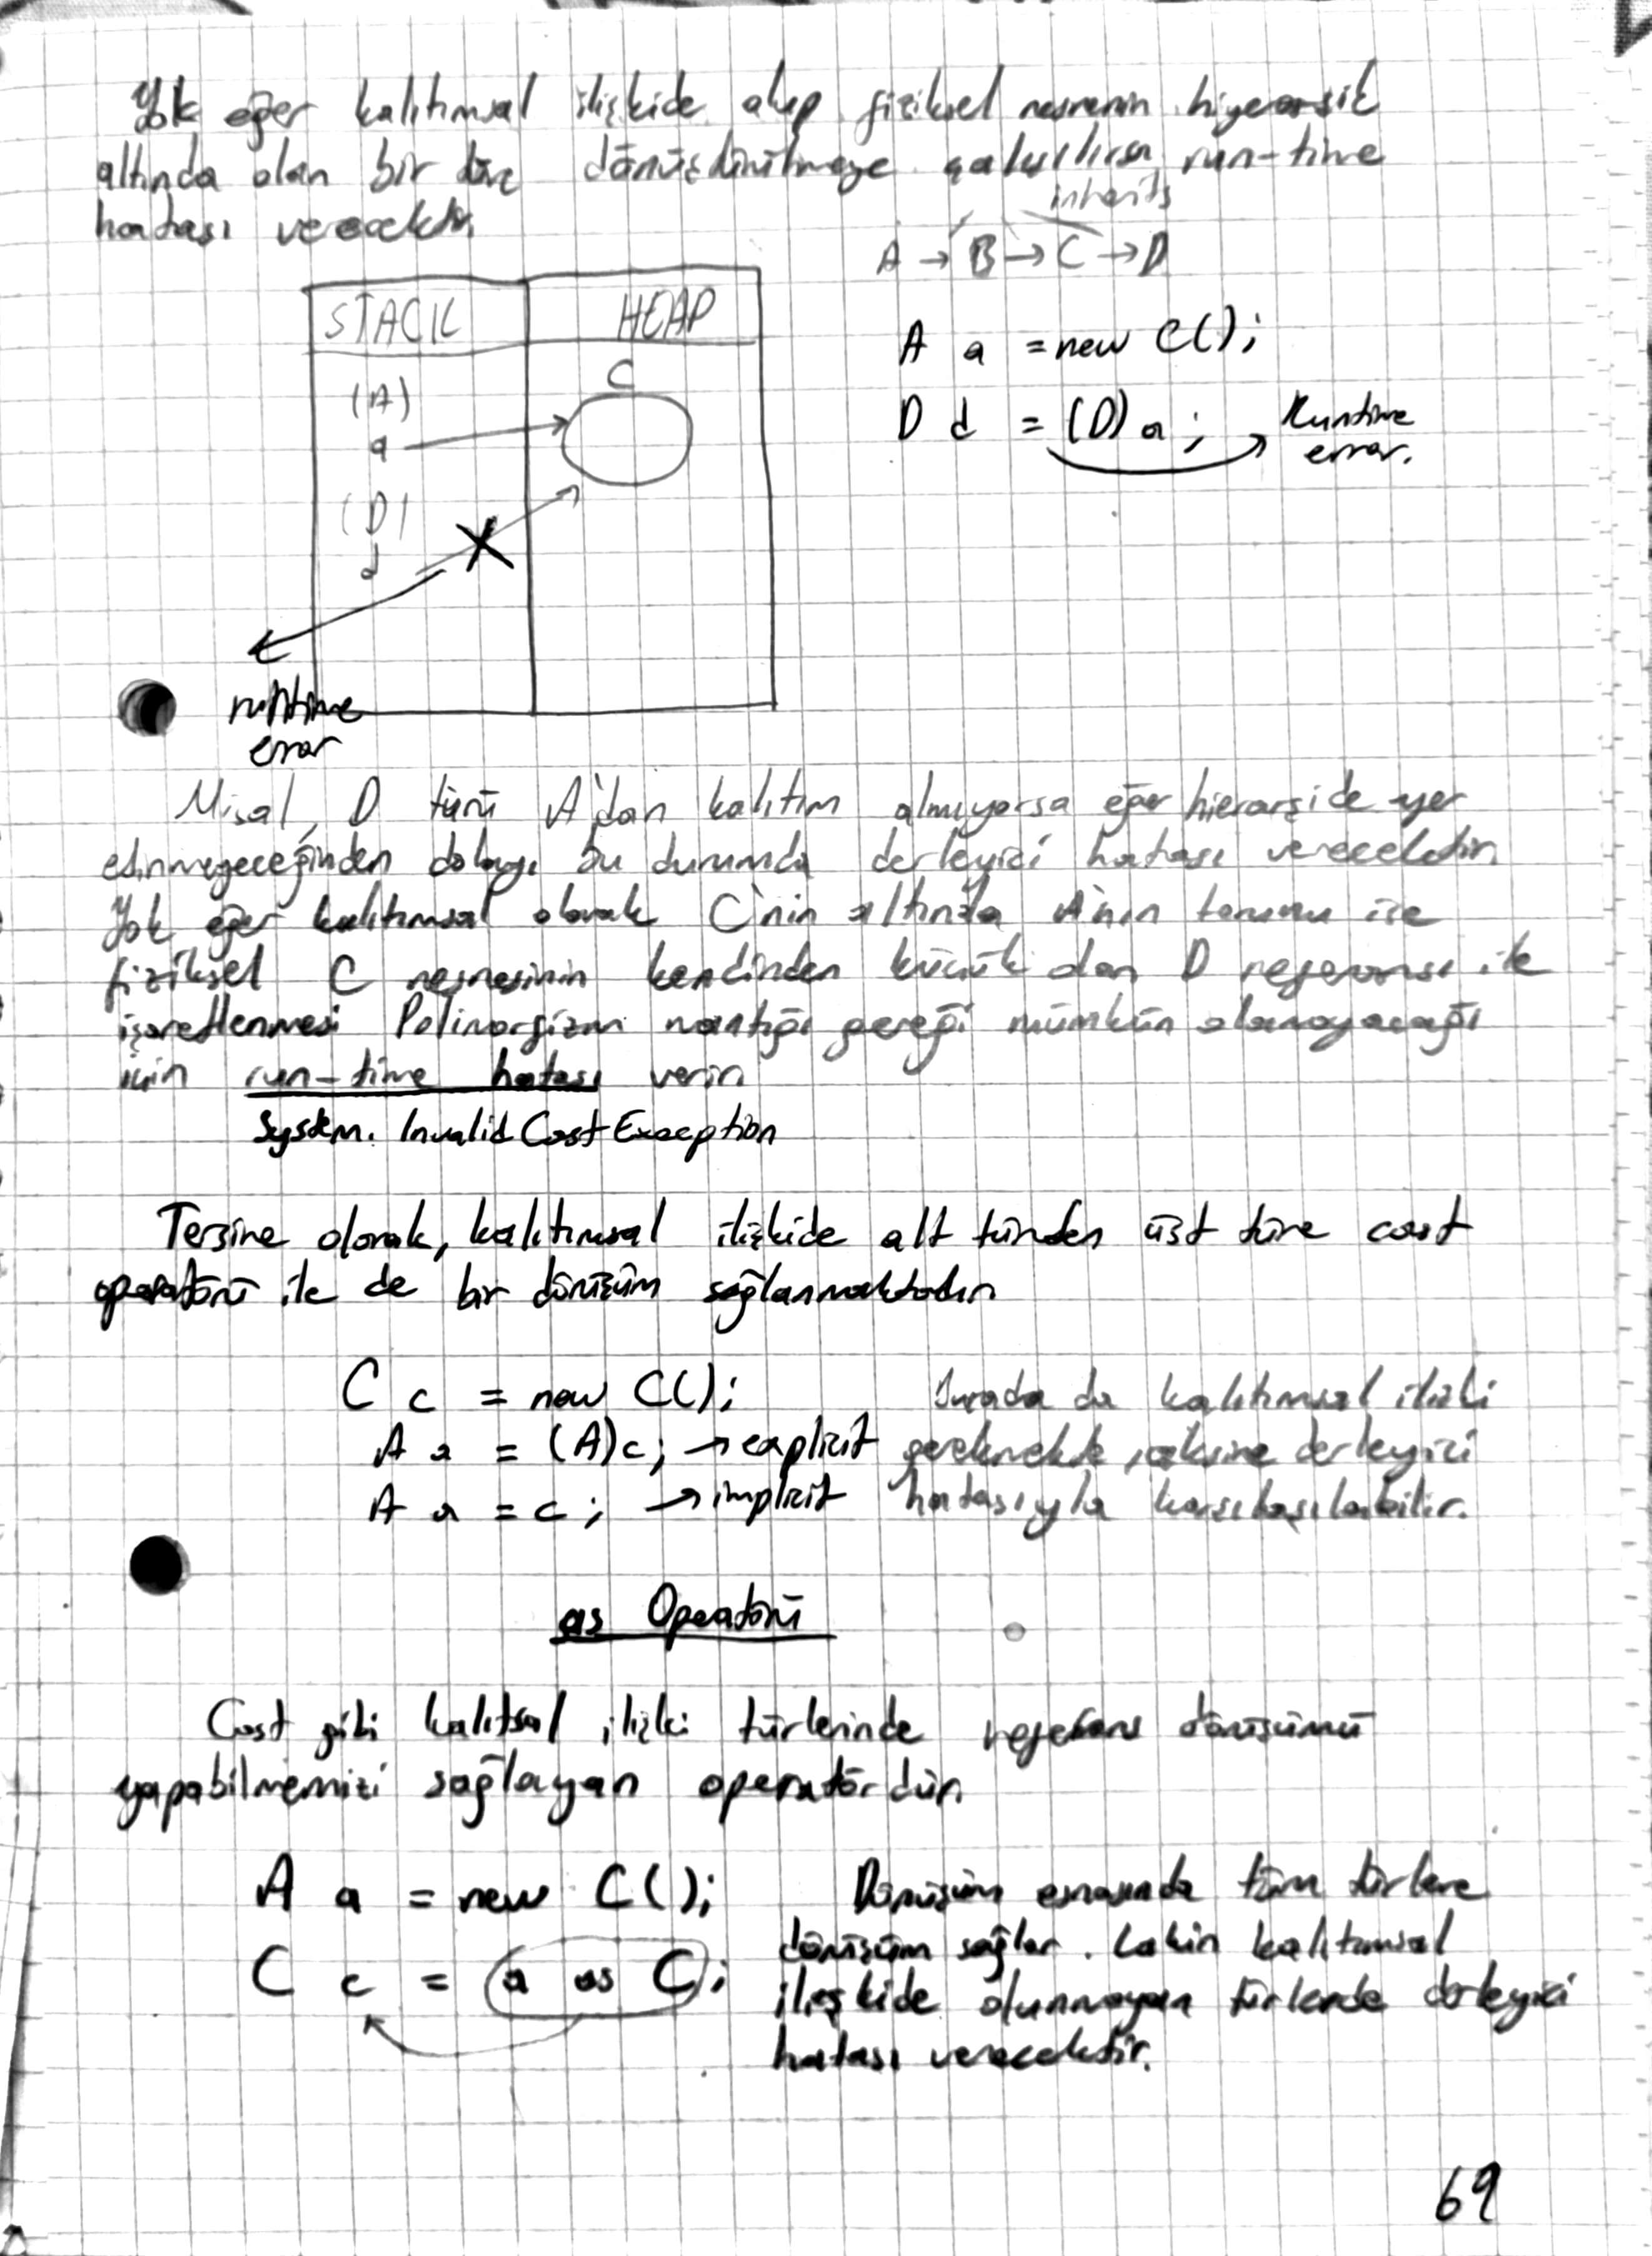 Yok eğer kalıtımsal ilişkide olup fiziksel nesnenin hiyerarşik
altında olan bir türe dönüştürülmeye çalışılırsa run-time
hatası verecektir.
inherits
A → B → C → D
STACK HEAP
A a = new C();
(A) C
a
D d = (D) a; Runtime
error.
(D)
d
runtime
error
Misal, D türü A'dan kalıtım almıyorsa eğer hierarşide yer
edinmeyeceğinden dolayı bu durumda derleyici hatası verecektir.
Yok eğer kalıtımsal olarak C'nin altında A'nın torunu ise
fiziksel C nesnesinin kendinden küçük olan D referansı ile
işaretlenmesi Polimorfizm mantığı gereği mümkün olamayacağı
için run-time hatası verir.
System. Invalid Cast Exception
Tersine olarak, kalıtımsal ilişkide alt türden üst türe cast
operatörü ile de bir dönüşüm sağlanmaktadır.
C c = new C();
A a = (A)c; → explicit
A a = c; → implicit
Burada da kalıtımsal ilişki
gerekmekte, aksine derleyici
hatasıyla karşılaşılabilir.
as Operatörü
Cast gibi kalıtsal ilişki türlerinde referans dönüşümü
yapabilmemizi sağlayan operatördür.
A a = new C();
C c = a as C;
Dönüşüm esnasında tüm türlere
dönüşüm sağlar. Lakin kalıtımsal
ilişkide olunmayan türlerde derleyici
hatası verecektir.
69